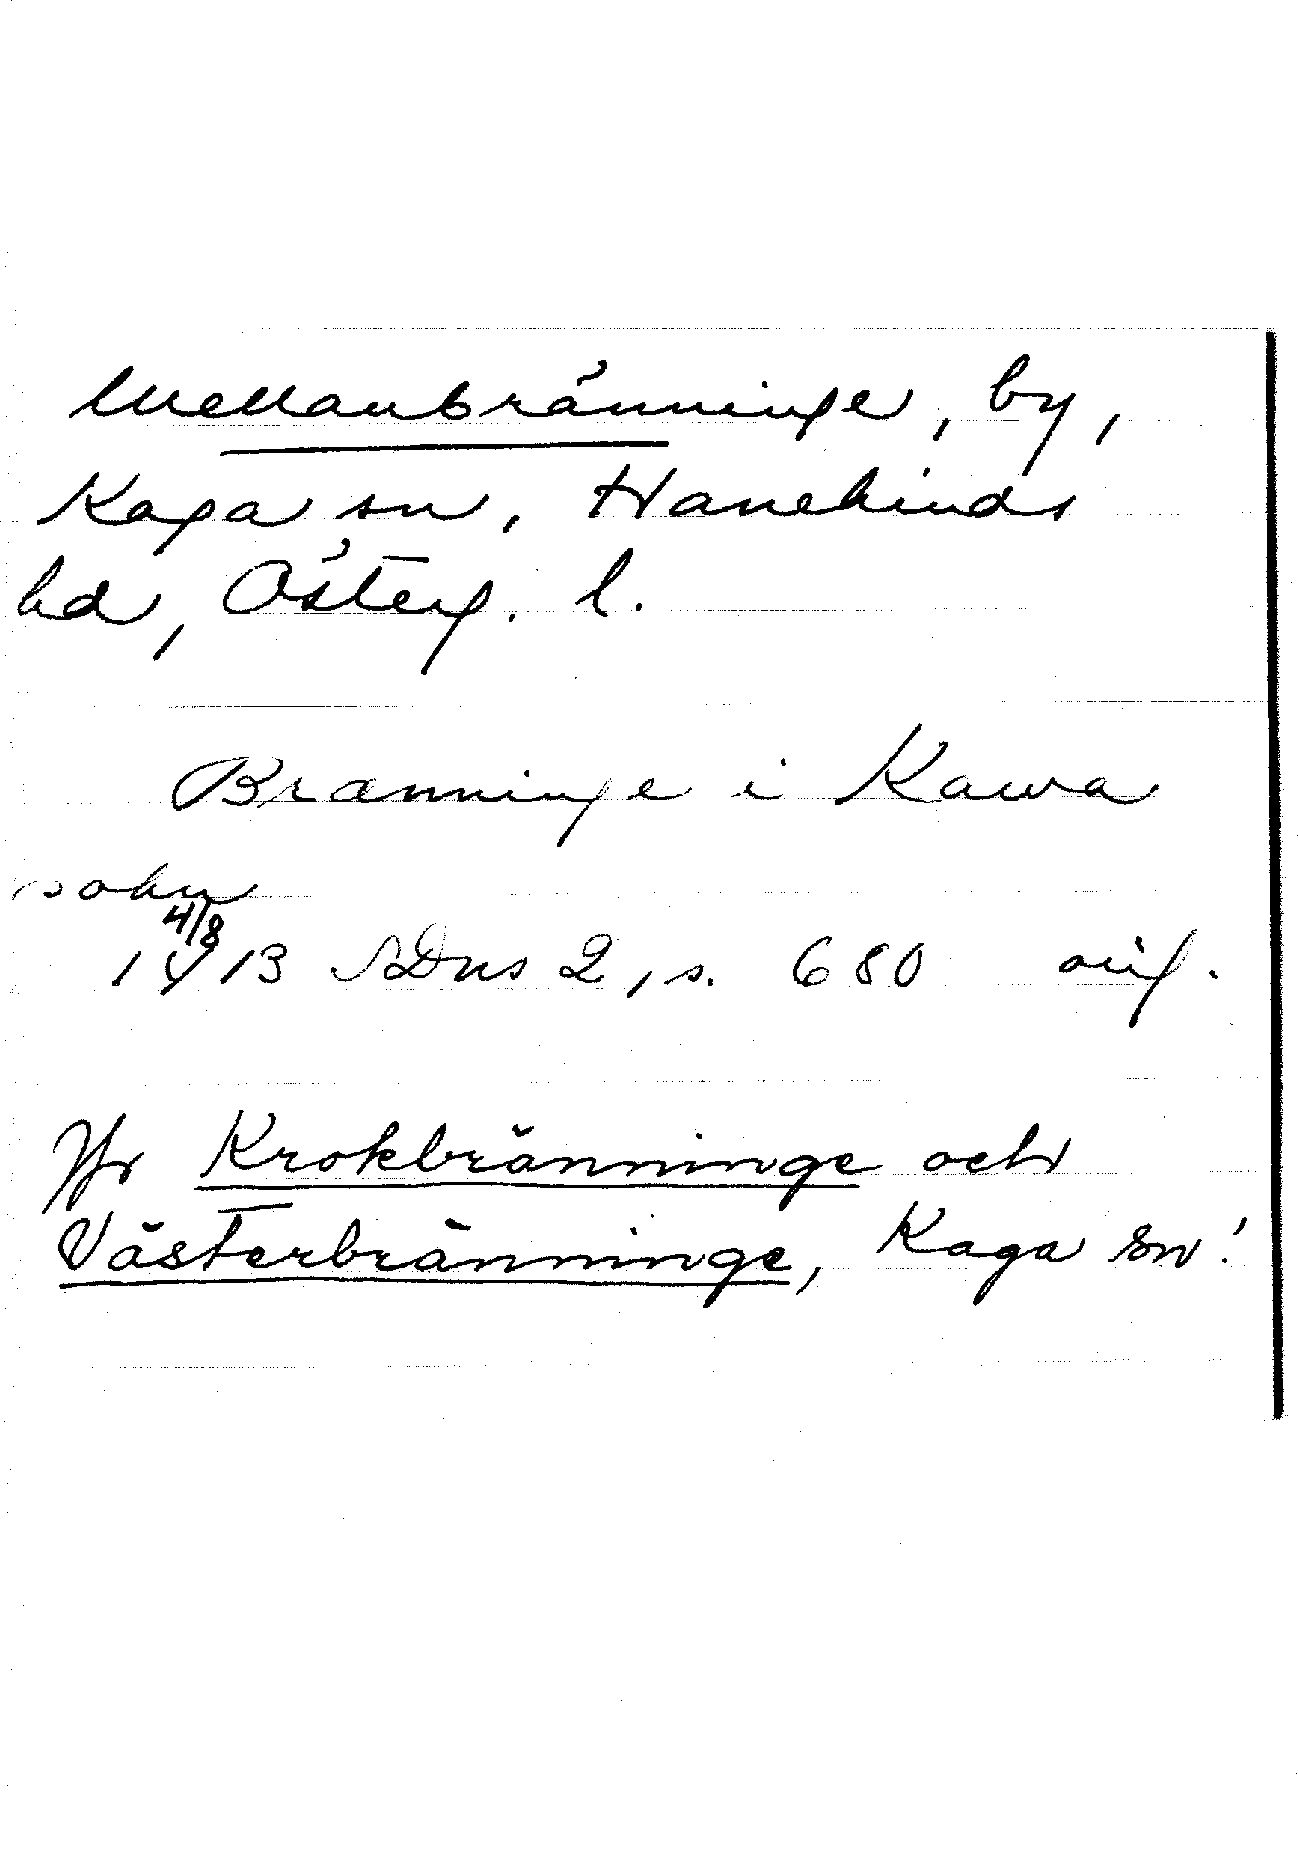 Mellanbränninge, by,
Kaga sn, Hanekinds
hd, Österg. l.
Branninge i Kawa
sokn
4/8
1413 SDns 2, s. 680 orig.
Jfr Krokbränninge och
Västerbränninge, Kaga sn!